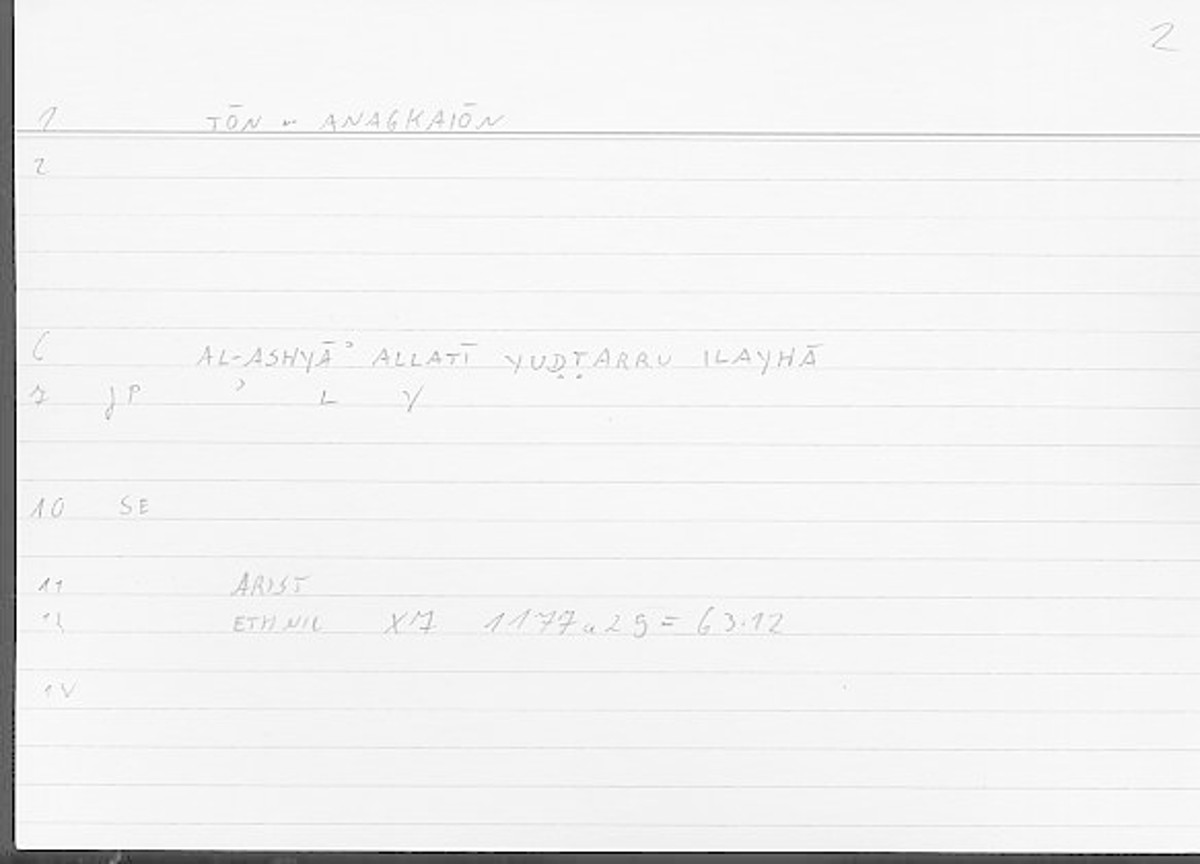 2
1 TŌN ~ ANAGKAIŌN
2
6 AL-ASHYĀʾ ALLATĪ YUḌṬARRU ILAYHĀ
7 JP ʾ L Y
10 SE
11 ARIST
12 ETH NIC X7 1177a29 = 63.12